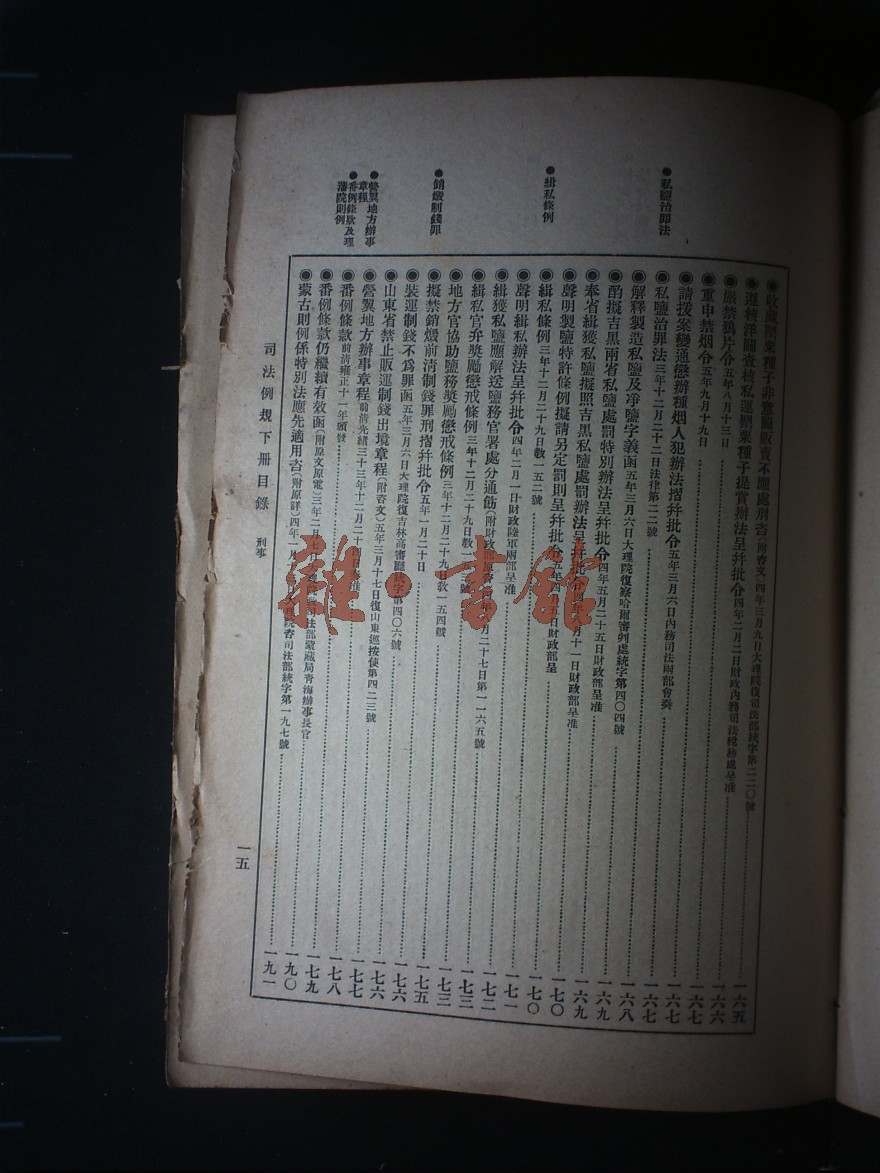 ●私鹽治罪法
●緝私條例
●銷燬制錢罪
●營翼地方辦事章程
●番例條款及理藩院則例
◉收藏罌粟種子非意圖販賣不應處刑咨(附咨文)四年三月九日大理院復司法部統字第二二〇號 一六五
◉遵核洋關查核私運罌粟種子提賞辦法呈幷批令四年二月二日財政內務司法稅務處呈准 一六六
◉嚴禁鴉片令五年八月十三日 一六七
◉重申禁烟令五年九月十九日 一六七
◉請援案變通懲辦種烟人犯辦法摺幷批令五年三月六日內務司法兩部會奏 一六七
◉私鹽治罪法三年十二月二十二日法律第二二號 一六七
◉解釋製造私鹽及淨鹽字義函五年三月六日大理院復察哈爾審判處統字第四〇四號 一六八
◉酌擬吉黑兩省私鹽處罰特別辦法呈幷批令四年五月二十五日財政部呈准 一六九
◉奉省緝獲私鹽擬照吉黑私鹽處罰辦法呈幷批令四年八月十一日財政部呈准 一六九
◉聲明製鹽特許條例擬請另定罰則呈幷批令五年四月五日財政部呈 一七〇
◉緝私條例三年十二月二十九日敎一五二號 一七〇
◉聲明緝私辦法呈幷批令四年二月一日財政陸軍兩部呈准 一七一
◉緝獲私鹽應解送鹽務官署處分通飭(附財政部原咨)四年二月二十七日第一一六五號 一七二
◉緝私官弁獎勵懲戒條例三年十二月二十九日敎一五三號 一七三
◉地方官協助鹽務獎勵懲戒條例三年十二月二十九日敎一五四號 一七三
◉擬禁銷燬前淸制錢罪刑摺幷批令五年一月二十日 一七五
◉裝運制錢不爲罪函五年三月六日大理院復吉林高審廳統字第四〇六號 一七六
◉山東省禁止販運制錢出境章程(附咨文)五年三月十七日復山東巡按使第四二三號 一七六
◉營翼地方辦事章程前淸光緒三十三年十二月二十四日奏准 一七七
◉番例條款前淸雍正十一年頒發 一七八
◉番例條款仍繼續有效函(附原文原電)三年二月七日司法部蒙藏局靑海辦事長官 一七九
◉蒙古則例係特別法應先適用咨(附原詳)四年一月大理院咨司法部統字第一九七號 一九〇
一九一
司法例規下册目錄 刑事
一五
雜·書館